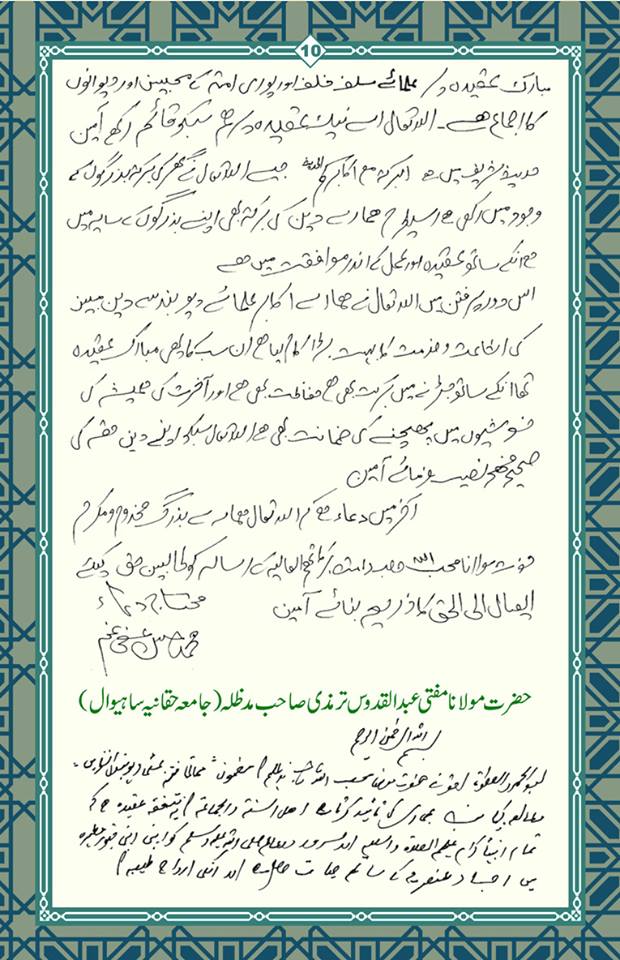 10
مبارک عقیدہ پر علمائے سلف خلف اور پوری امت کے محبین اور دیوانوں
کا اجماع ہے۔ اللہ تعالی اسے نیک عقیدہ پر ہم سبکو قائم رکھے آمین
حدیث شریف میں ہے البرکۃ مع اکابرکم جیسے اللہ تعالی نے گھر کی برکت بزرگوں کے
وجود میں رکھی ہے اسیطرح ہمارے دین کی برکت بھی اپنے بزرگوں کے سایہ میں
انکے ساتھ عقیدہ اور عمل کے اندر موافقت میں ہے
اس دور پر فتن میں اللہ تعالی نے ہمارے اکابر علمائے دیوبند سے دین مبین
کی اشاعت و خدمت کا بہت بڑا کام لیا ہے ان سب کا یہی مبارک عقیدہ
تھا انکے ساتھ جڑنے میں برکت بھی ہے حفاظت بھی ہے اور آخرت کی ہمیشہ کی
خوشیوں میں پہنچنے کی ضمانت بھی ہے اللہ تعالی سبکو اپنے دین حقہ کی
صحیح فہم نصیب فرمائے آمین
آخر میں دعاء ہے کہ اللہ تعالی ہمارے بزرگ مخدوم و مکرم
حضرت مولانا محب اللہ صاحب دامت برکاتہم العالیہ کے رسالہ کو طالبین حق کیلئے
ایصال الی الحق کا ذریعہ بنائے آمین
محتاج دعاء
محمد حسن عفی عنہ
حضرت مولانا مفتی عبدالقدوس ترمذی صاحب مدظلہ (جامعہ حقانیہ ساہیوال)
بسم اللہ الرحمن الرحیم
بعد الحمد والصلوۃ احقر نے حضرت مولانا محب اللہ صاحب مدظلہم کا مضمون
مطالعہ کیا کی تائید کرتا ہے اہل السنۃ والجماعۃ کا متفقہ عقیدہ ہے کہ
تمام انبیاء کرام علیہم الصلوۃ والسلام اور سرور دوعالم صلی اللہ علیہ وسلم کو اپنی اپنی قبور مطہرہ
میں اجساد عنصریہ کے ساتھ حیات حاصل ہے اور انکی ارواح طیبہ کا